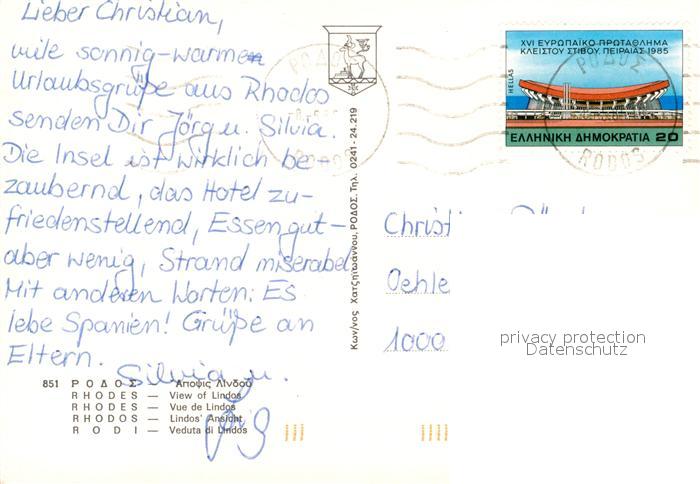 Lieber Christian,
viele sonnig-warme
Urlaubsgrüße aus Rhodos
senden Dir Jörg u. Silvia.
Die Insel ist wirklich be-
zaubernd, das Hotel zu-
friedenstellend, Essen gut -
aber wenig, Strand miserabel.
Mit anderen Worten: Es
lebe Spanien! Grüße an
Eltern.
Silvia u.
Jörg
851 ΡΟΔΟΣ — Άποψις Λίνδου
RHODES — View of Lindos
RHODES — Vue de Lindos
RHODOS — Lindos' Ansicht
RODI — Veduta di Lindos
Κων/νος Χατζηϊωάννου, ΡΟΔΟΣ, Τηλ. 0241 - 24.219
XVI ΕΥΡΩΠΑΪΚΟ ΠΡΩΤΑΘΛΗΜΑ
ΚΛΕΙΣΤΟΥ ΣΤΙΒΟΥ, ΠΕΙΡΑΙΑΣ 1985
HELLAS
ΕΛΛΗΝΙΚΗ ΔΗΜΟΚΡΑΤΙΑ 20
ΡΟΔΟΣ
RODOS
Christi
Oehle
1000
privacy protection
Datenschutz